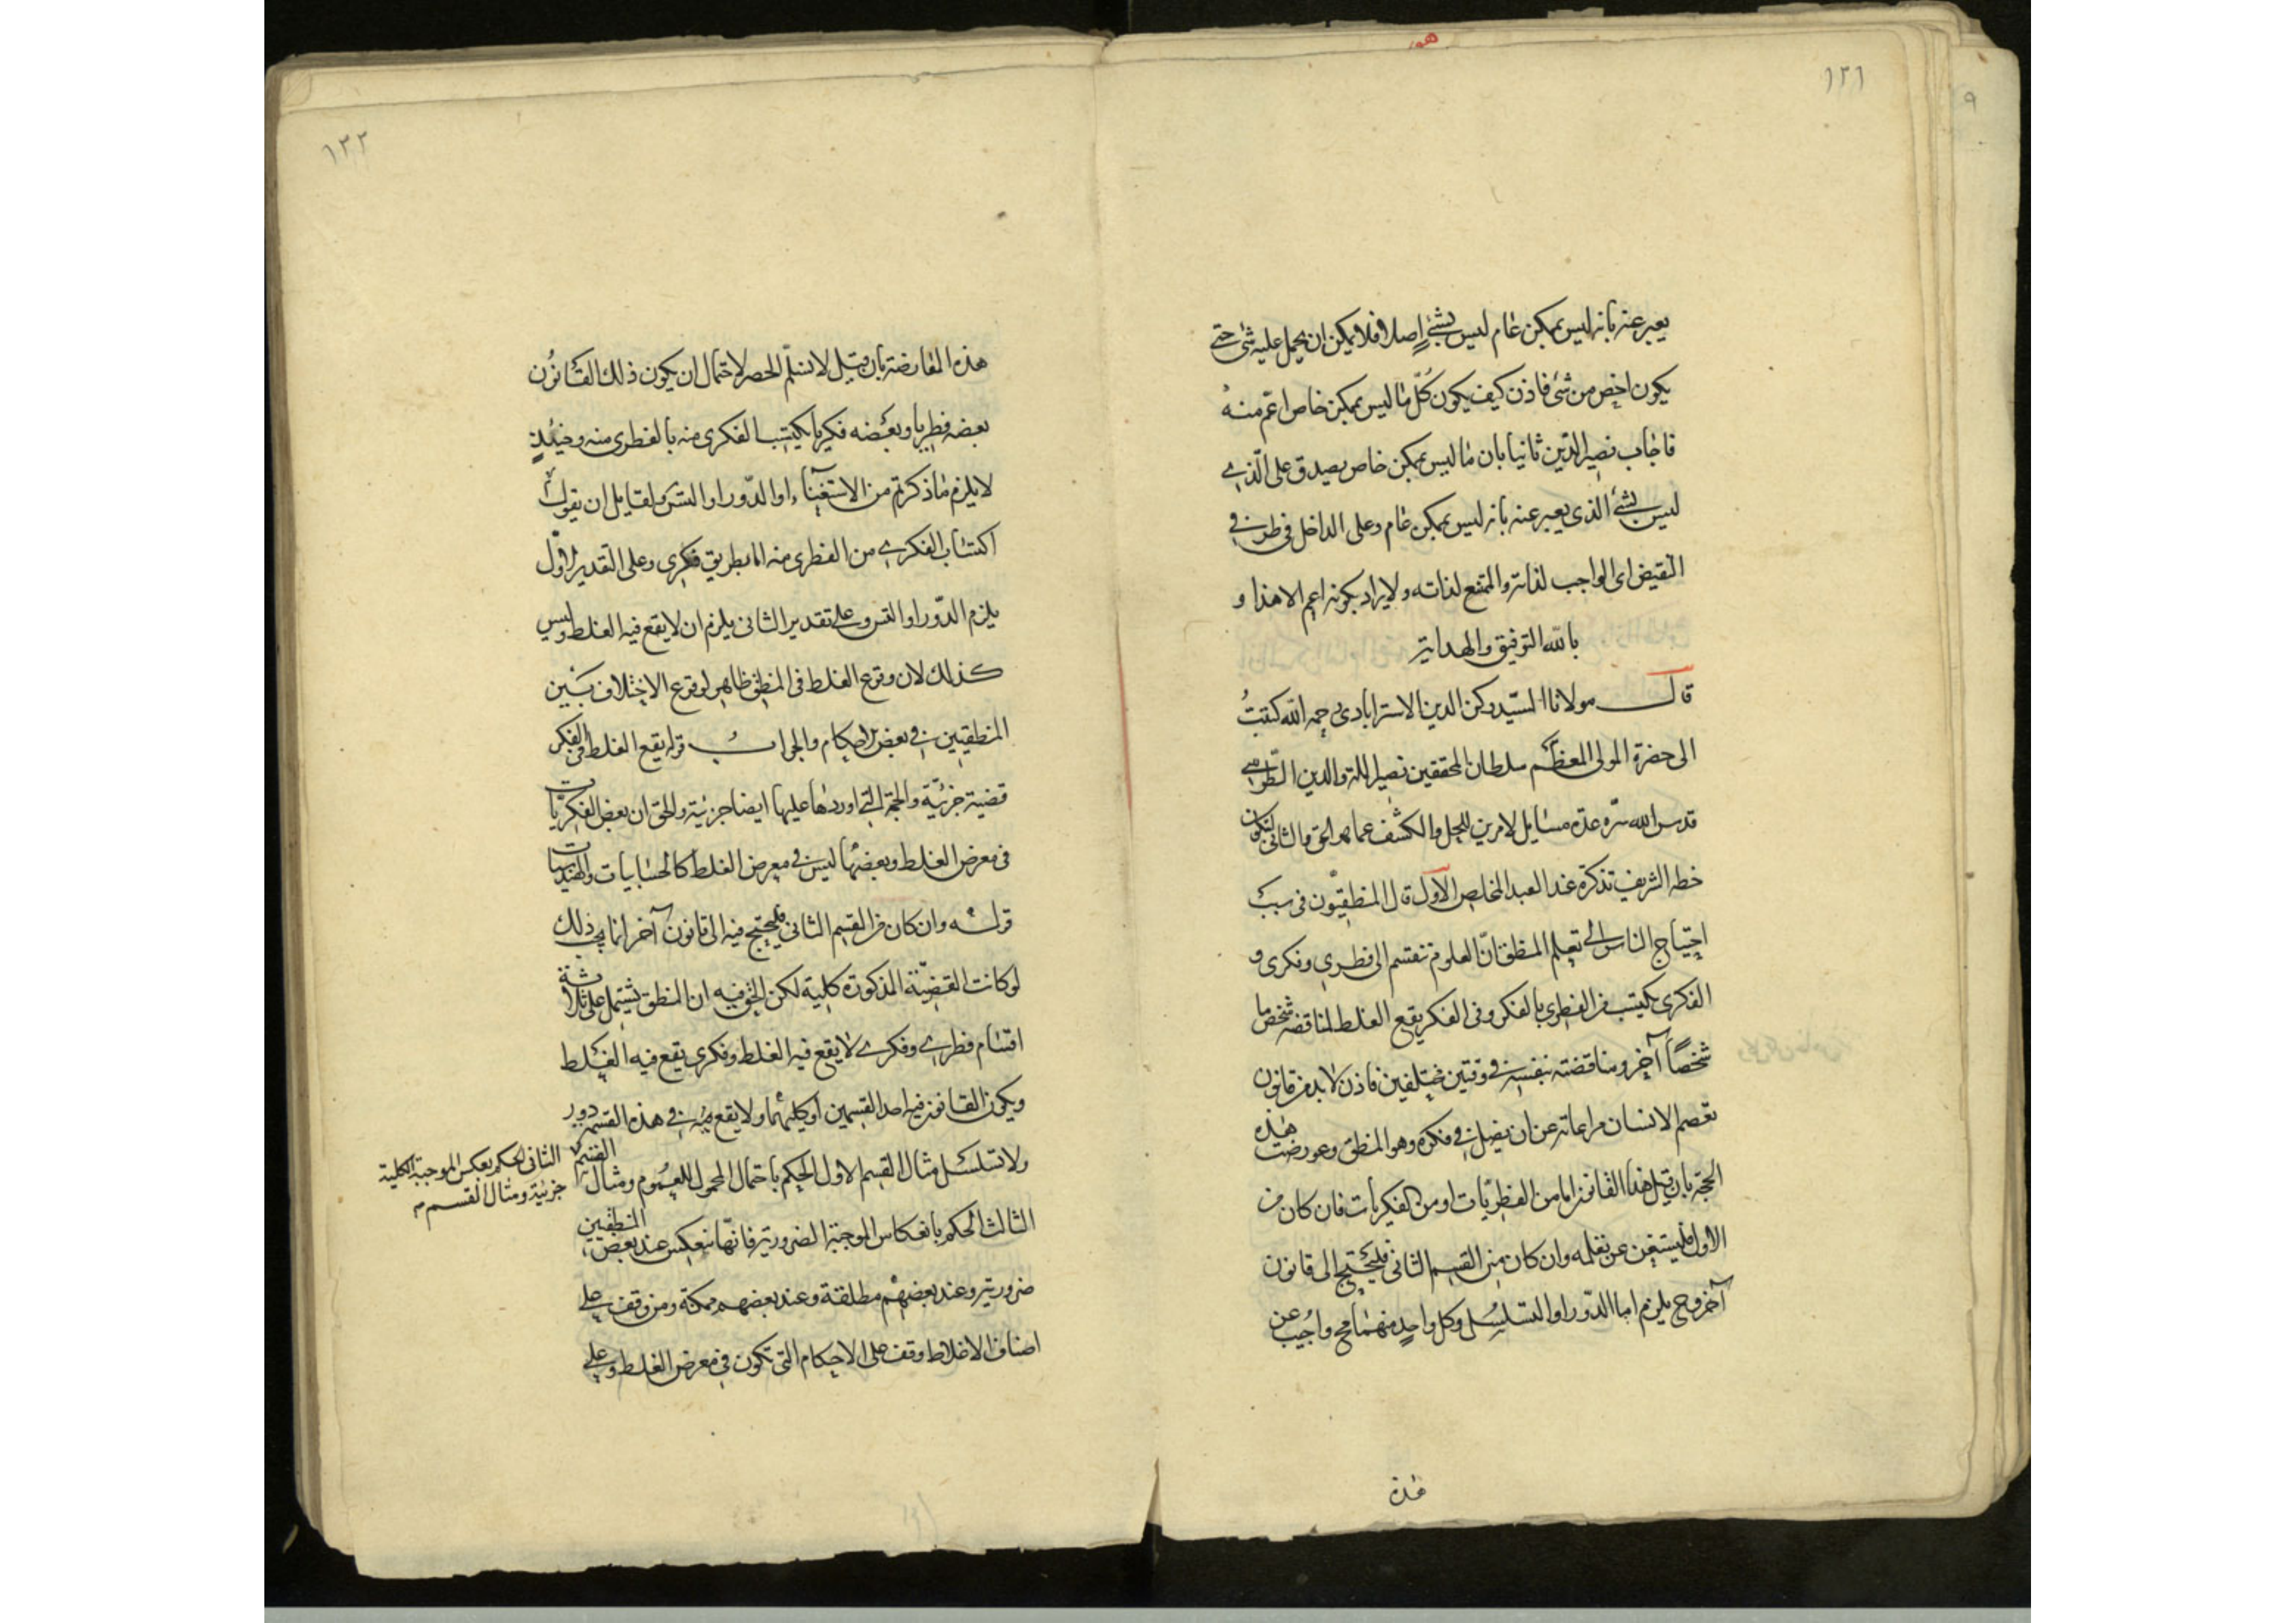 ١٢١
يعبر عنه بانه ليس بممكن عام ليس بشئ اصلا فلا يمكن ان يحمل عليه شئ حتى
يكون اخص من شئ فاذن كيف يكون كل ما ليس بممكن خاص اعم منه
فاجاب نصير الدين ثانيا بان ما ليس بممكن خاص يصدق على الذى
ليس بشئ الذى يعبر عنه بانه ليس بممكن عام وعلى الداخل فى طرفى
النقيض اى الواجب لذاته والممتنع لذاته ولا يراد بكونه اعم الا هذا و
بالله التوفيق والهداية
قال مولانا السيد ركن الدين الاسترابادى رحمه الله كتبت
الى حضرة المولى المعظم سلطان المحققين نصير الملة والدين الطوسى
قدس الله سره عدة مسايل لامرين للحل والكشف عما هو الحق والثانى ليكون
خطه الشريف تذكرة عند العبد المخلص الاول قال المنطقيون فى سبب
احتياج الناس الى تعلم المنطق ان العلوم تنقسم الى فطرى وفكرى و
الفكرى يكتسب من الفطرى بالفكر وفى الفكر يقع الغلط لمناقضه شخص ما
شخصا آخر ومناقضته بنفسه فى وقتين مختلفين فاذن لا بد من قانون
تعصم الانسان مراعاته عن ان يضل فى فكره وهو المنطق وعورضت هذه
الحجة بان قيل هذا القانون اما من الفطريات او من الفكريات فان كان من
الاول فليستغن عن تعلمه وان كان من القسم الثانى فليحتج الى قانون
آخر وح يلزم اما الدور او التسلسل وكل واحد منهما مح واجيب عن
هذه
١٢٢
هذه المعارضة بان قيل لا نسلم الحصر لاحتمال ان يكون ذلك القانون
بعضه فطريا وبعضه فكريا يكتسب الفكرى منه بالفطرى منه وحينئذ
لا يلزم ما ذكرتم من الاستغناء او الدور او التس ولقايل ان يقول
اكتساب الفكرى من الفطرى منه اما بطريق فكرى وعلى التقدير الاول
يلزم الدور او التس وعلى تقدير الثانى يلزم ان لا يقع فيه الغلط وليس
كذلك لان وقوع الغلط فى المنطق ظاهر لوقوع الاختلاف بين
المنطقيين فى بعض الاحكام والجواب قوله يقع الغلط فى الفكر
قضية جزئية والحجة التى اوردها عليها ايضا جزئية والحق ان بعض الفكريات
فى معرض الغلط وبعضها ليس فى معرض الغلط كالحسابيات والهندسيات
قوله وان كان من القسم الثانى فليحتج فيه الى قانون آخر انما يجب ذلك
لو كانت القضية المذكورة كلية لكن الحق فيه ان المنطق يشتمل على ثلاثة
اقسام فطرى وفكرى لا يقع فيه الغلط وفكرى يقع فيه الغلط
ويكون القانون فيه احد القسمين او كليهما ولا يقع فى هذه القسمة دور
ولا تسلسل مثال القسم الاول الحكم باحتمال المحمول للعموم ومثال القسم
الثانى الحكم بعكس الموجبة الكلية
جزئية ومثال القسم
الثالث الحكم بانعكاس الموجبة الضرورية فانها تنعكس عند بعض المنطقيين
ضرورية وعند بعضهم مطلقة وعند بعضهم ممكنة ومن وقف على
اصناف الاغلاط وقف على الاحكام التى تكون فى معرض الغلط وعلى